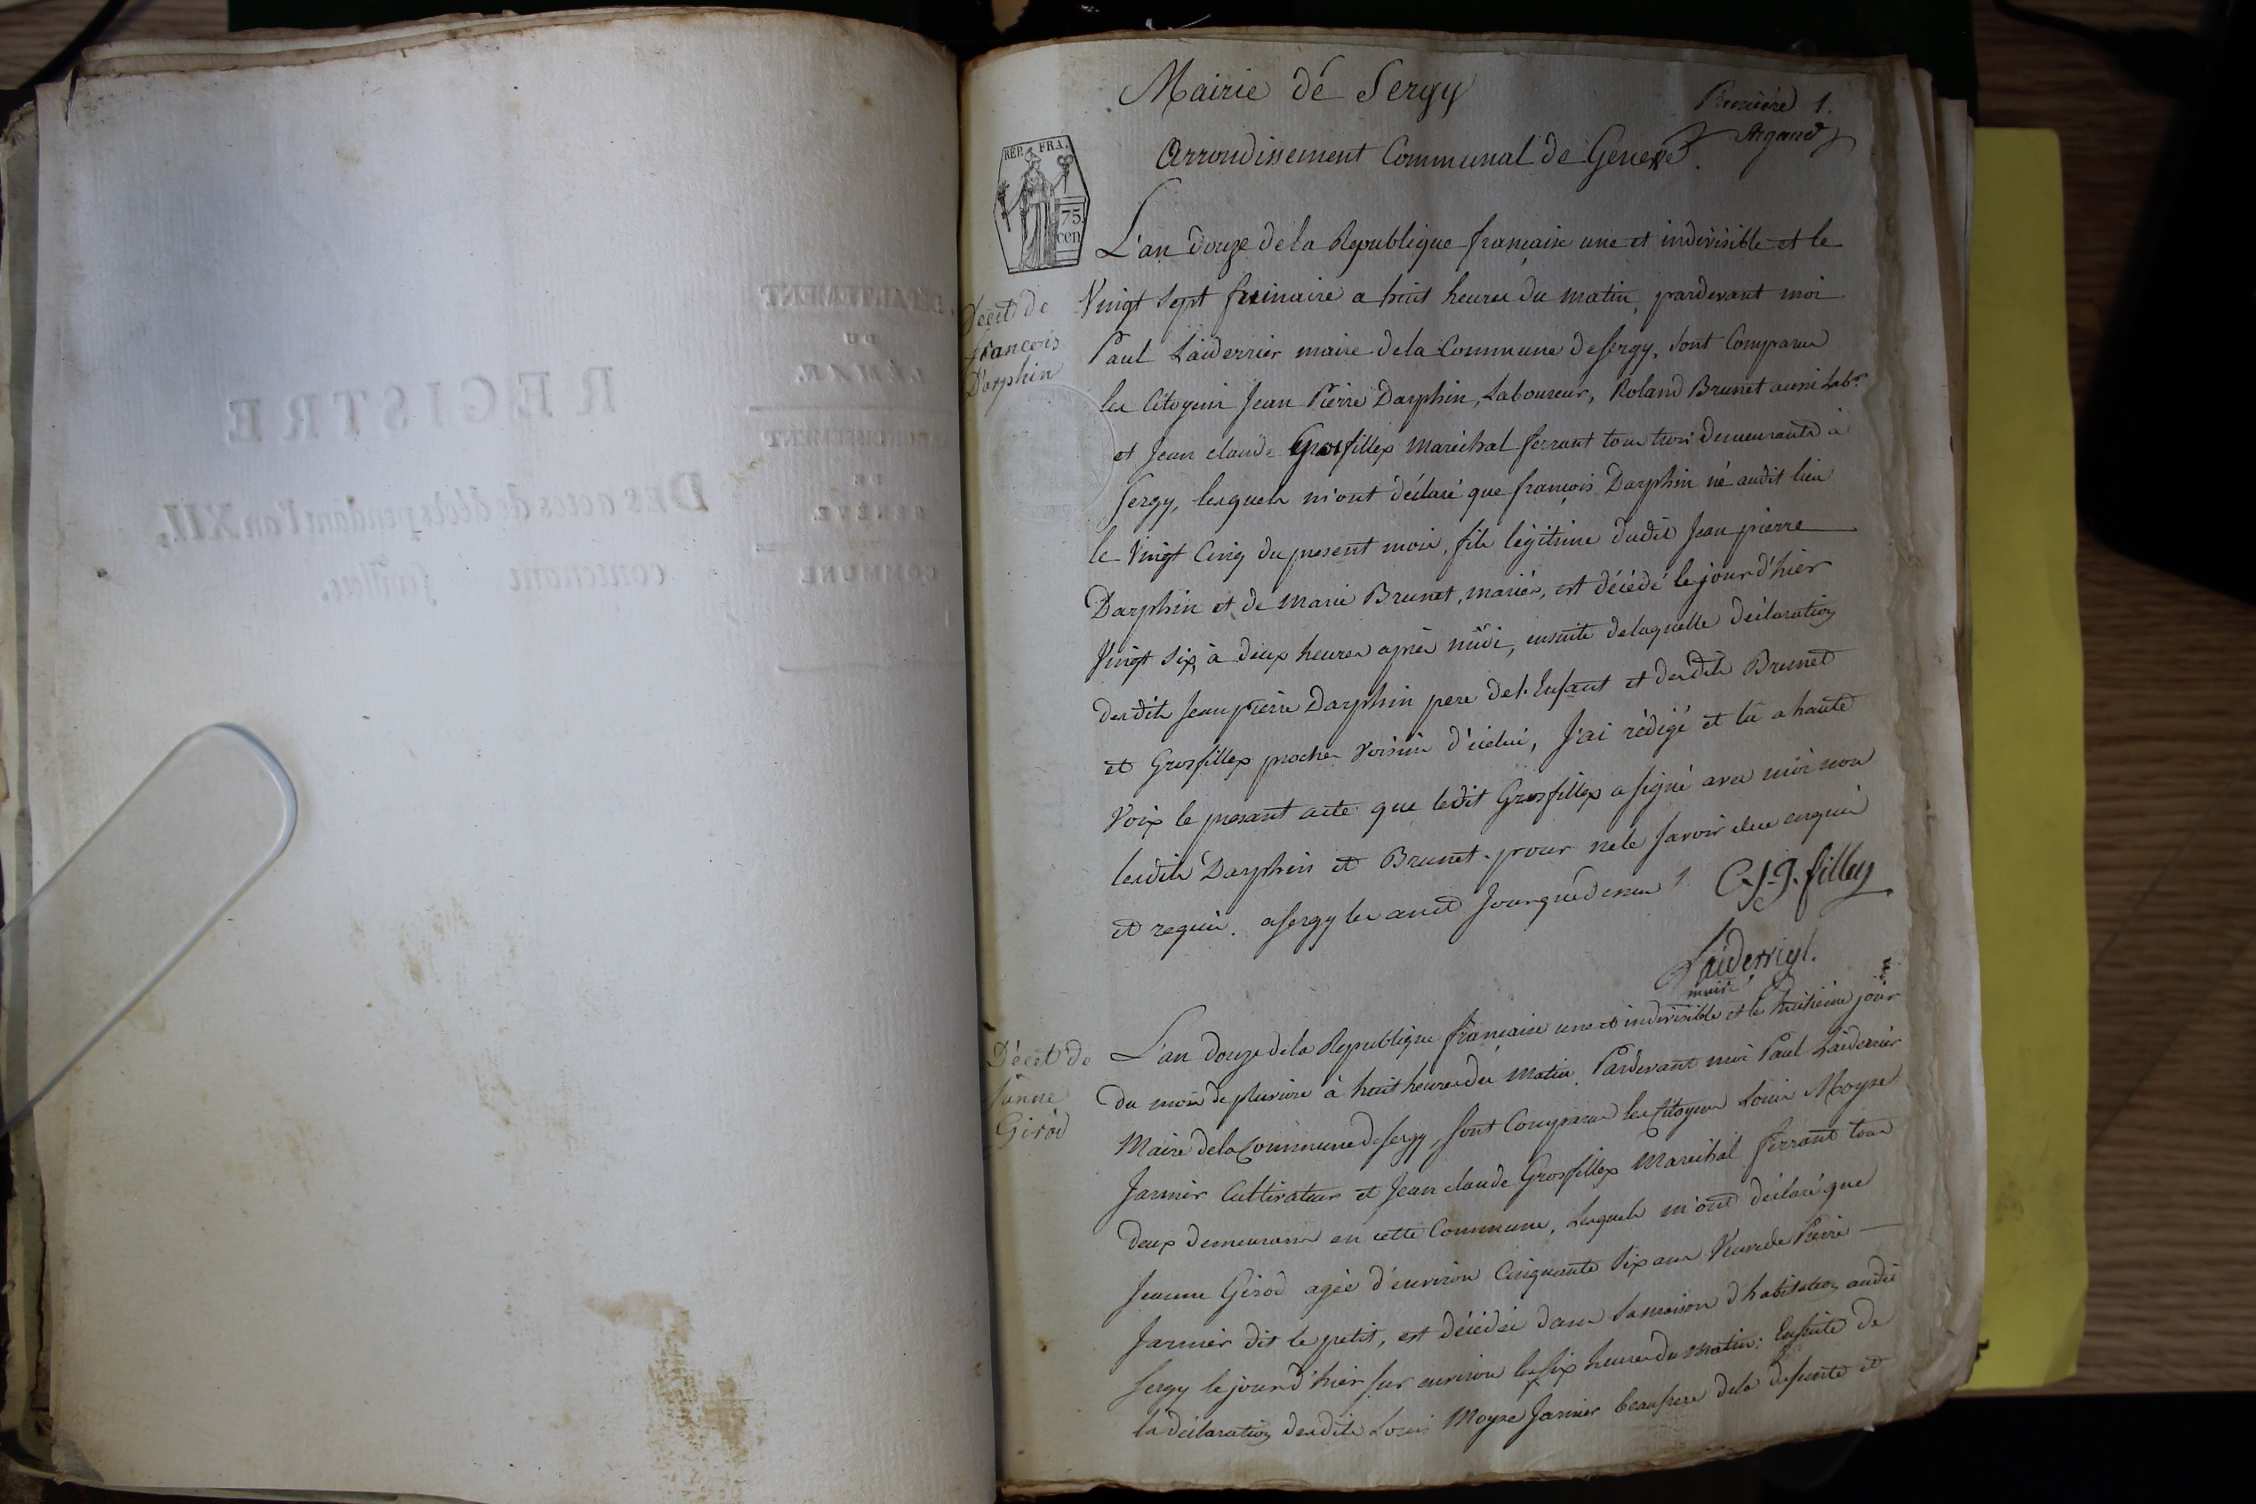 DÉPARTEMENT
DU
LÉMAN.
ARRONDISSEMENT
DE
GENÈVE.
COMMUNE
REGISTRE
DES actes de décès pendant l'an XII,
contenant feuillets.
Mairie dé Sergy
Premiére 1.
Argand
Arrondissement Communal de Geneve.
REP. FRA.
75.
cen
L'an douze de la Republique française une et indivisible et le
Vingt Sept frimaire a huit heures du matin, pardevant moi
Paul Laiderrier maire de la Commune de Sergy, Sont Comparus
les Citoyens Jean Pierre Darphin, Laboureur, Roland Brunet aussi Labr.
et Jean claude Grosfillex Maréchal ferrant tous trois demeurants à
Sergy, lesquels m'ont déclaré que françois Darphin né audit lieu
le Vingt Cinq du present mois, fils légitime dudit Jean pierre
Darphin et de Marie Brunet, mariés, est décédé le jour d'hier
Vingt Six, à deux heures après midi, ensuite de laquelle déclaration
desdits Jean pierre Darphin pere de l'Enfant et desdits Brunet
et Grosfillex proches Voisins d'icelui, J'ai rédigé et lu a haute
Voix le present acte que ledit Grosfillex a signé avec moi non
lesdits Darphin et Brunet pour ne le Savoir de ce enquis
et requis. a Sergy les an et Jour que dessus
C-J-G. fillex
Laiderrier.
maire
Décét de
françois
Darphin
L'an douze de la Republique française une et indivisible et le huitième jour
du mois de pluviose à huit heures du Matin. Pardevant moi Paul Laiderrier
Maire de la Commune de Sergy, Sont Comparus les Citoyens Louis Moyse
Jarnier Cultivateur et Jean claude Grosfillex Marechal ferrant tous
deux demeurans en cette Commune, Lesquels m'ont déclaré que
Jeanne Girod agée d'environ Cinquante Six ans Veuve de Pierre
Jarnier dit le petit, est décédée dans Sa maison d'habitation audit
Sergy le jour d'hier Sur environ les Six heures du matin; Ensuite de
la déclaration desdits Louis Moyse Jarnier beaufrere de la défunte et
Décét de
Janne
Girod